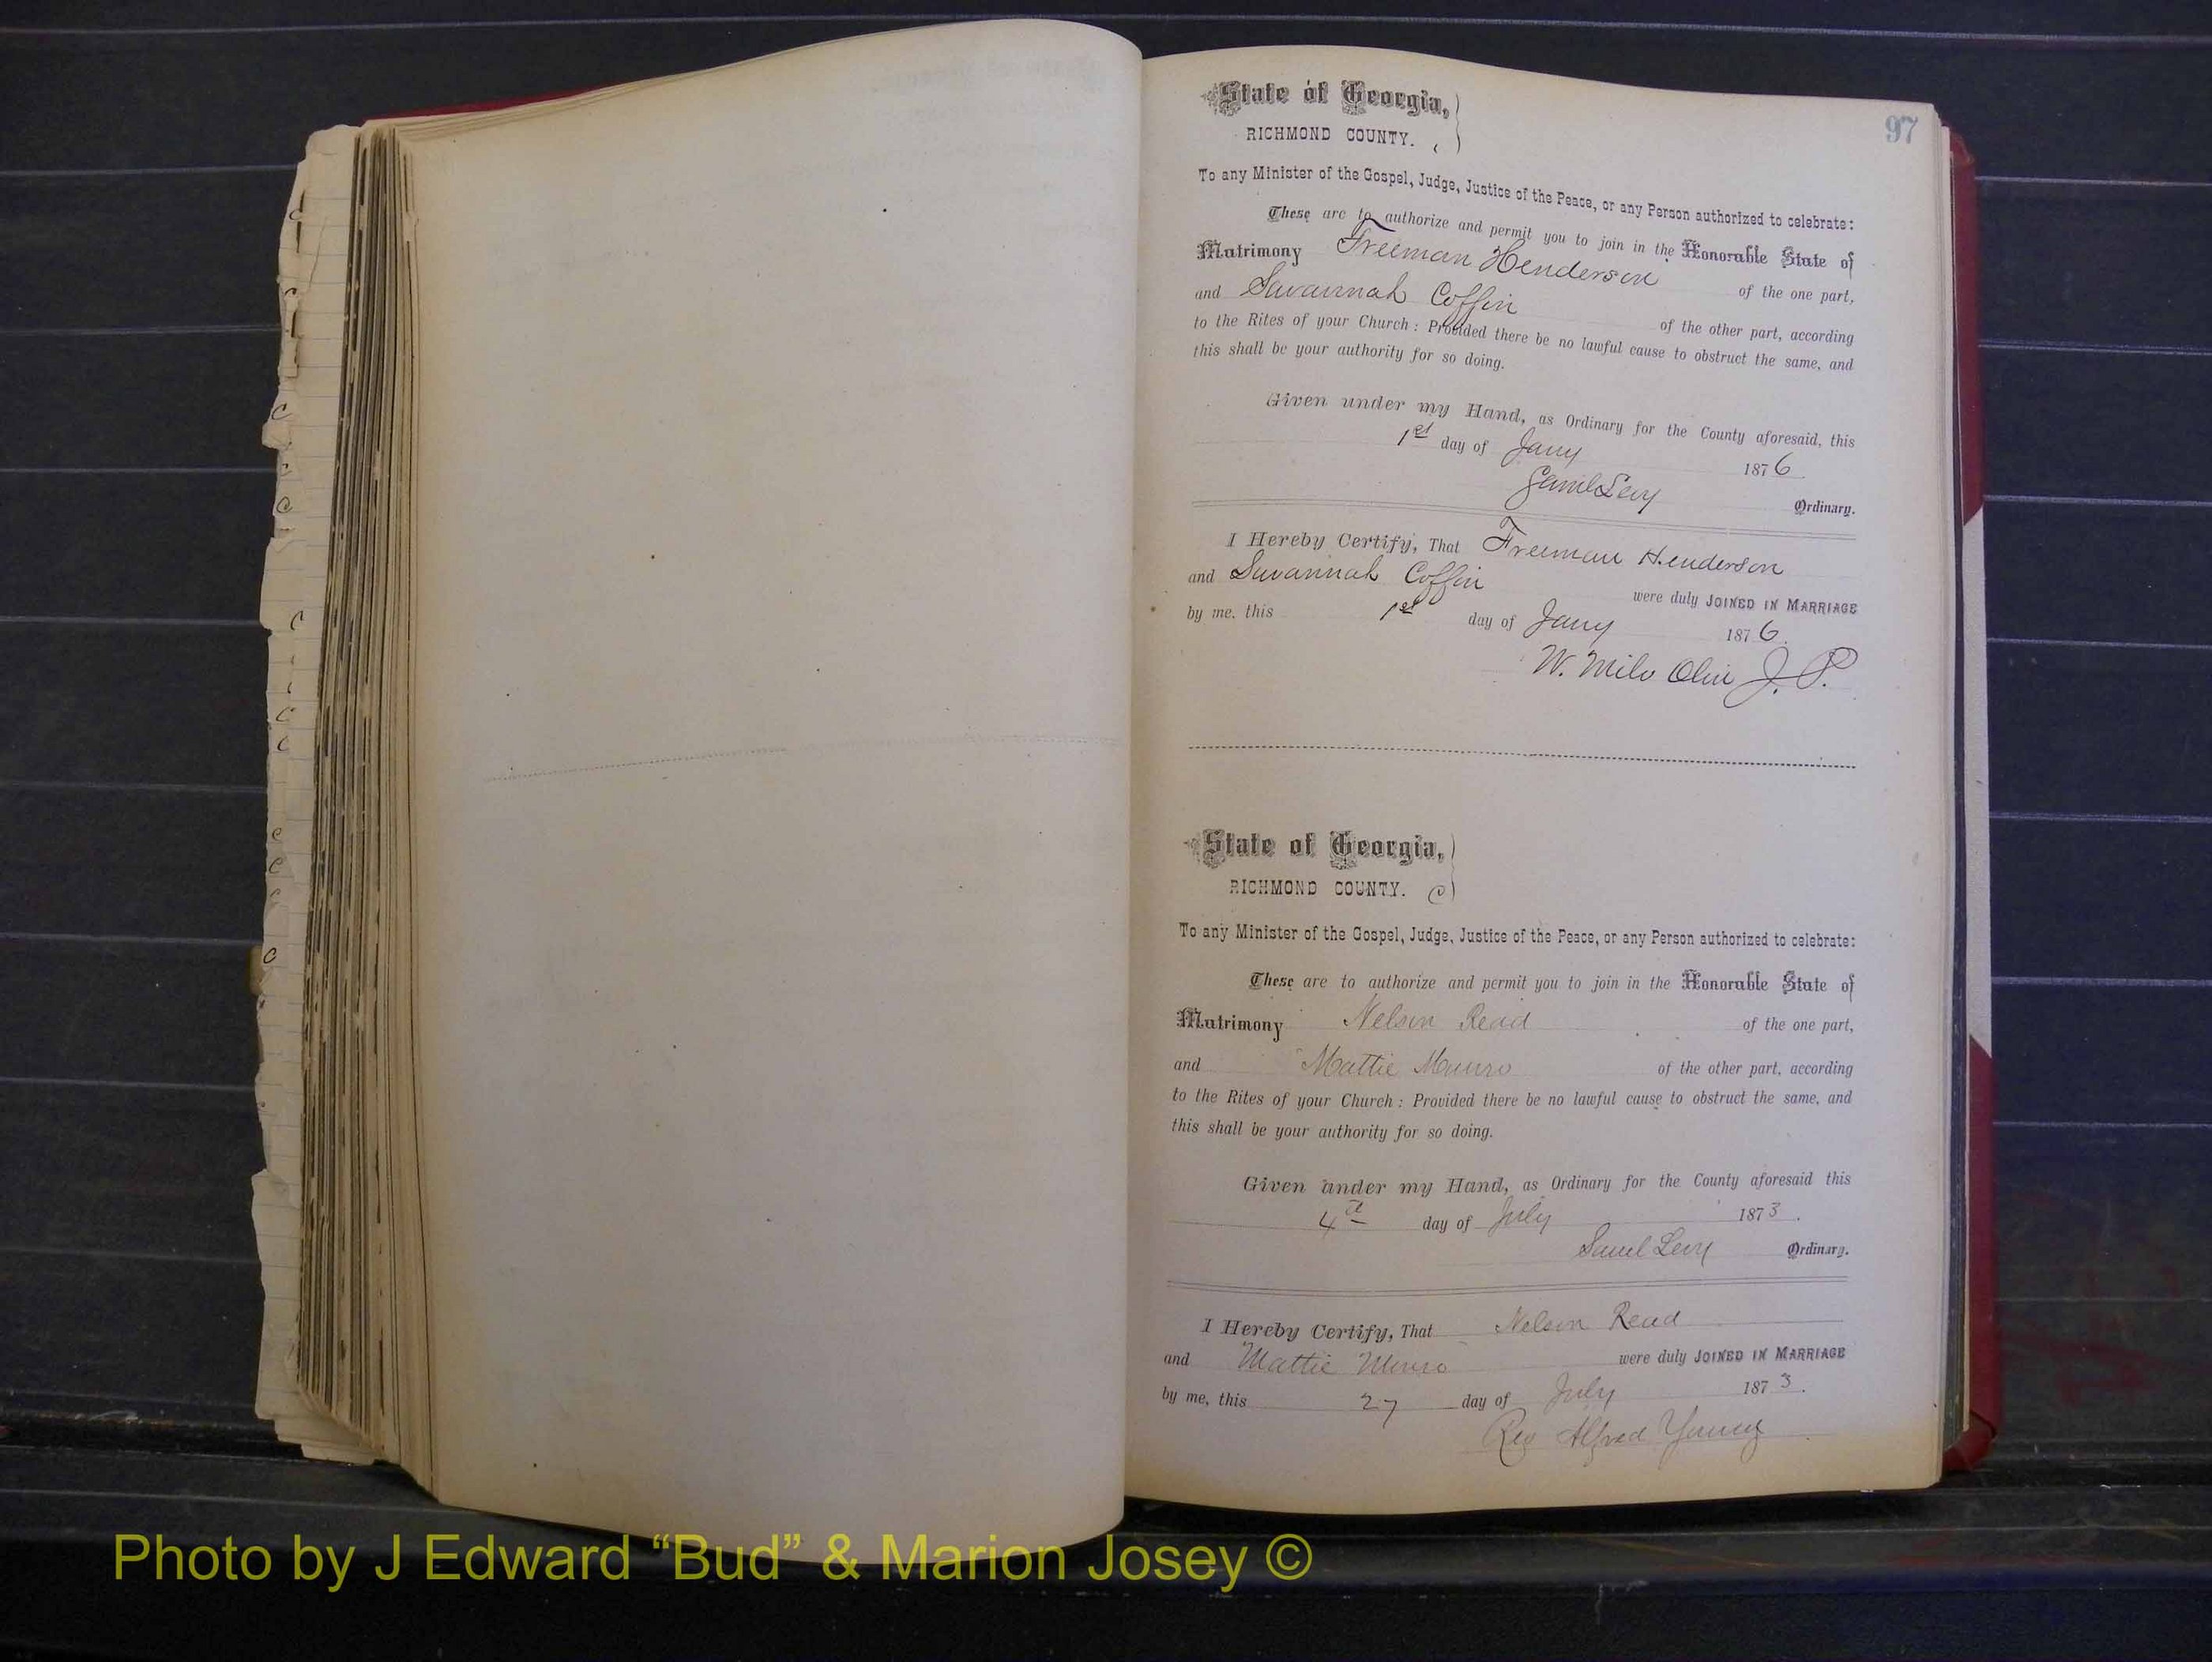 97
State of Georgia,
RICHMOND COUNTY.
To any Minister of the Gospel, Judge, Justice of the Peace, or any Person authorized to celebrate:
These are to authorize and permit you to join in the Honorable State of
Matrimony Freeman Henderson of the one part,
and Savannah Coffin of the other part, according
to the Rites of your Church: Provided there be no lawful cause to obstruct the same, and
this shall be your authority for so doing.
Given under my Hand, as Ordinary for the County aforesaid, this
1st day of Jany 1876
Saml Levy Ordinary.
I Hereby Certify, That Freeman Henderson
and Savannah Coffin were duly JOINED IN MARRIAGE
by me, this 1st day of Jany 1876.
W. Milo Olin J. P.
State of Georgia,
RICHMOND COUNTY. C
To any Minister of the Gospel, Judge, Justice of the Peace, or any Person authorized to celebrate:
These are to authorize and permit you to join in the Honorable State of
Matrimony Nelson Read of the one part,
and Mattie Munro of the other part, according
to the Rites of your Church: Provided there be no lawful cause to obstruct the same, and
this shall be your authority for so doing.
Given under my Hand, as Ordinary for the County aforesaid this
4th day of July 1873.
Saml Levy Ordinary.
I Hereby Certify, That Nelson Read
and Mattie Munro were duly JOINED IN MARRIAGE
by me, this 27 day of July 1873.
Rev Alfred Young
Photo by J Edward “Bud” & Marion Josey ©